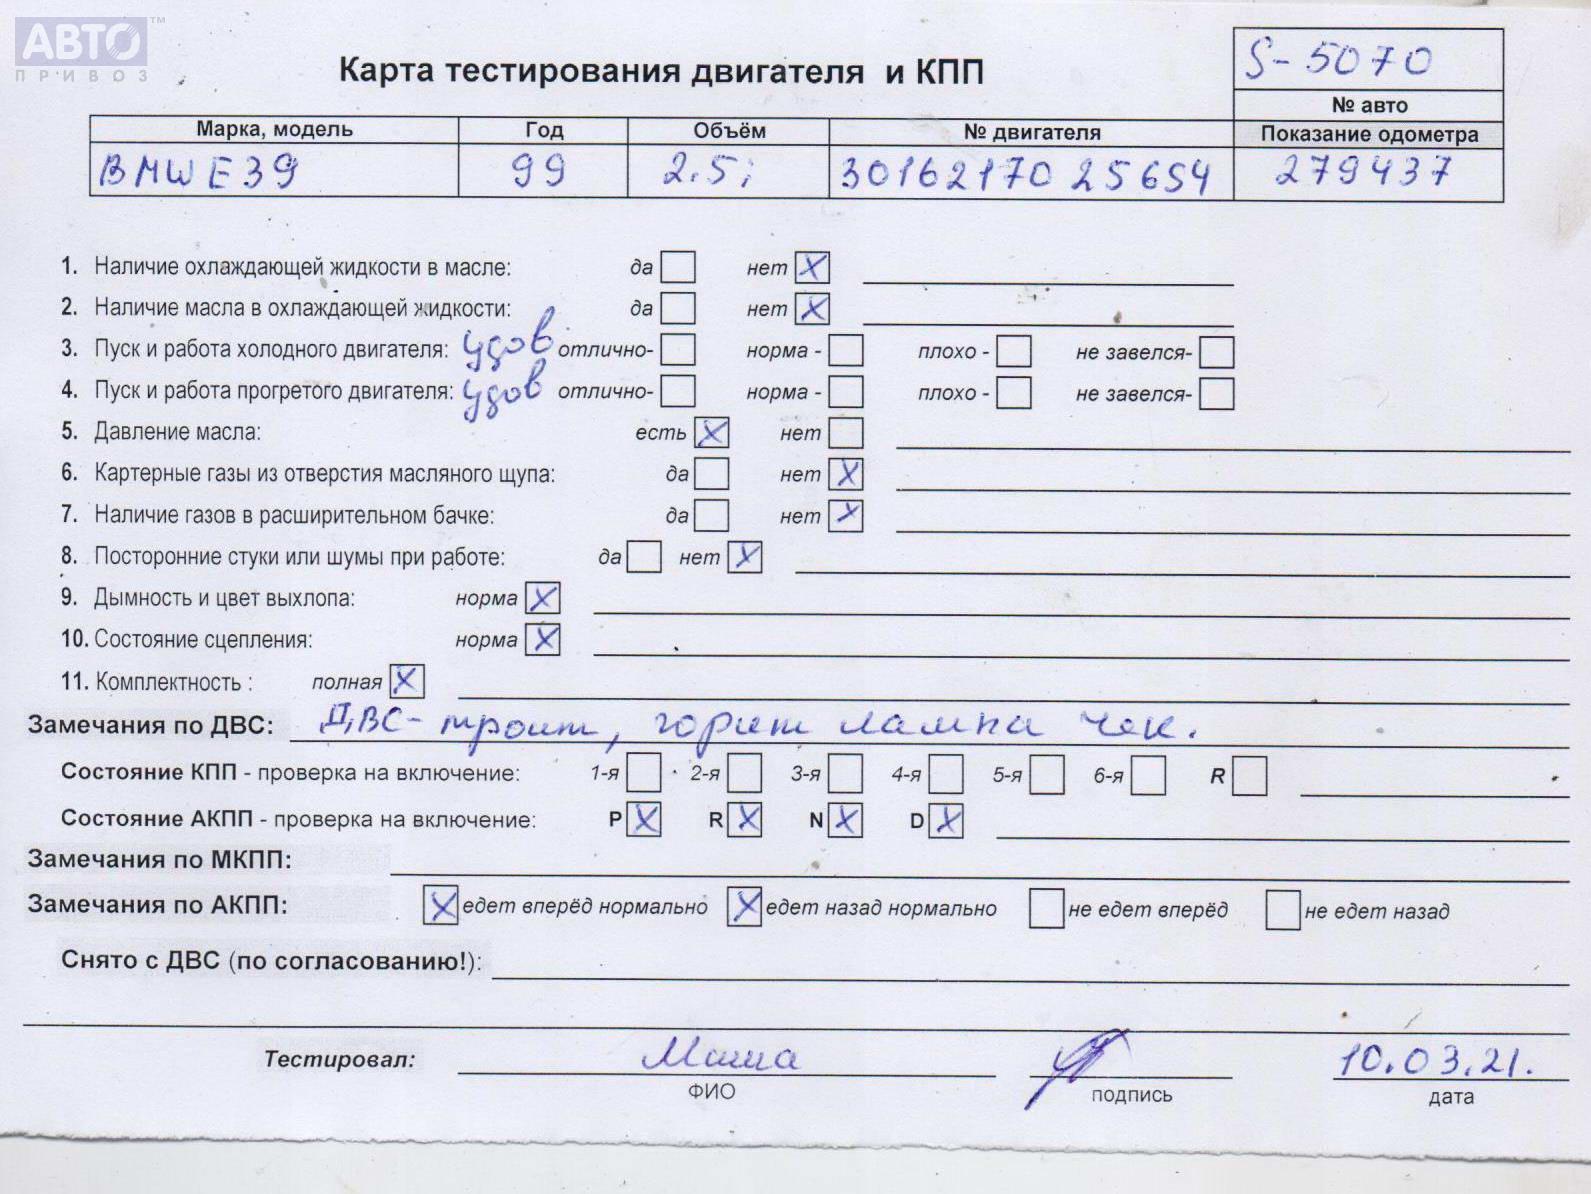 АВТО™
ПРИВОЗ
Карта тестирования двигателя и КПП
S-5070
№ авто
Марка, модель Год Объём № двигателя Показание одометра
BMW E39 99 2.5i 3016217025654 279437
1. Наличие охлаждающей жидкости в масле: да нет X
2. Наличие масла в охлаждающей жидкости: да нет X
3. Пуск и работа холодного двигателя: удов отлично- норма - плохо - не завелся-
4. Пуск и работа прогретого двигателя: удов отлично- норма - плохо - не завелся-
5. Давление масла: есть X нет
6. Картерные газы из отверстия масляного щупа: да нет X
7. Наличие газов в расширительном бачке: да нет X
8. Посторонние стуки или шумы при работе: да нет X
9. Дымность и цвет выхлопа: норма X
10. Состояние сцепления: норма X
11. Комплектность : полная X
Замечания по ДВС: ДВС- троит, горит лампа чек.
Состояние КПП - проверка на включение: 1-я 2-я 3-я 4-я 5-я 6-я R
Состояние АКПП - проверка на включение: P X R X N X D X
Замечания по МКПП:
Замечания по АКПП: X едет вперёд нормально X едет назад нормально не едет вперёд не едет назад
Снято с ДВС (по согласованию!):
Тестировал: 10.03.21.
ФИО подпись дата